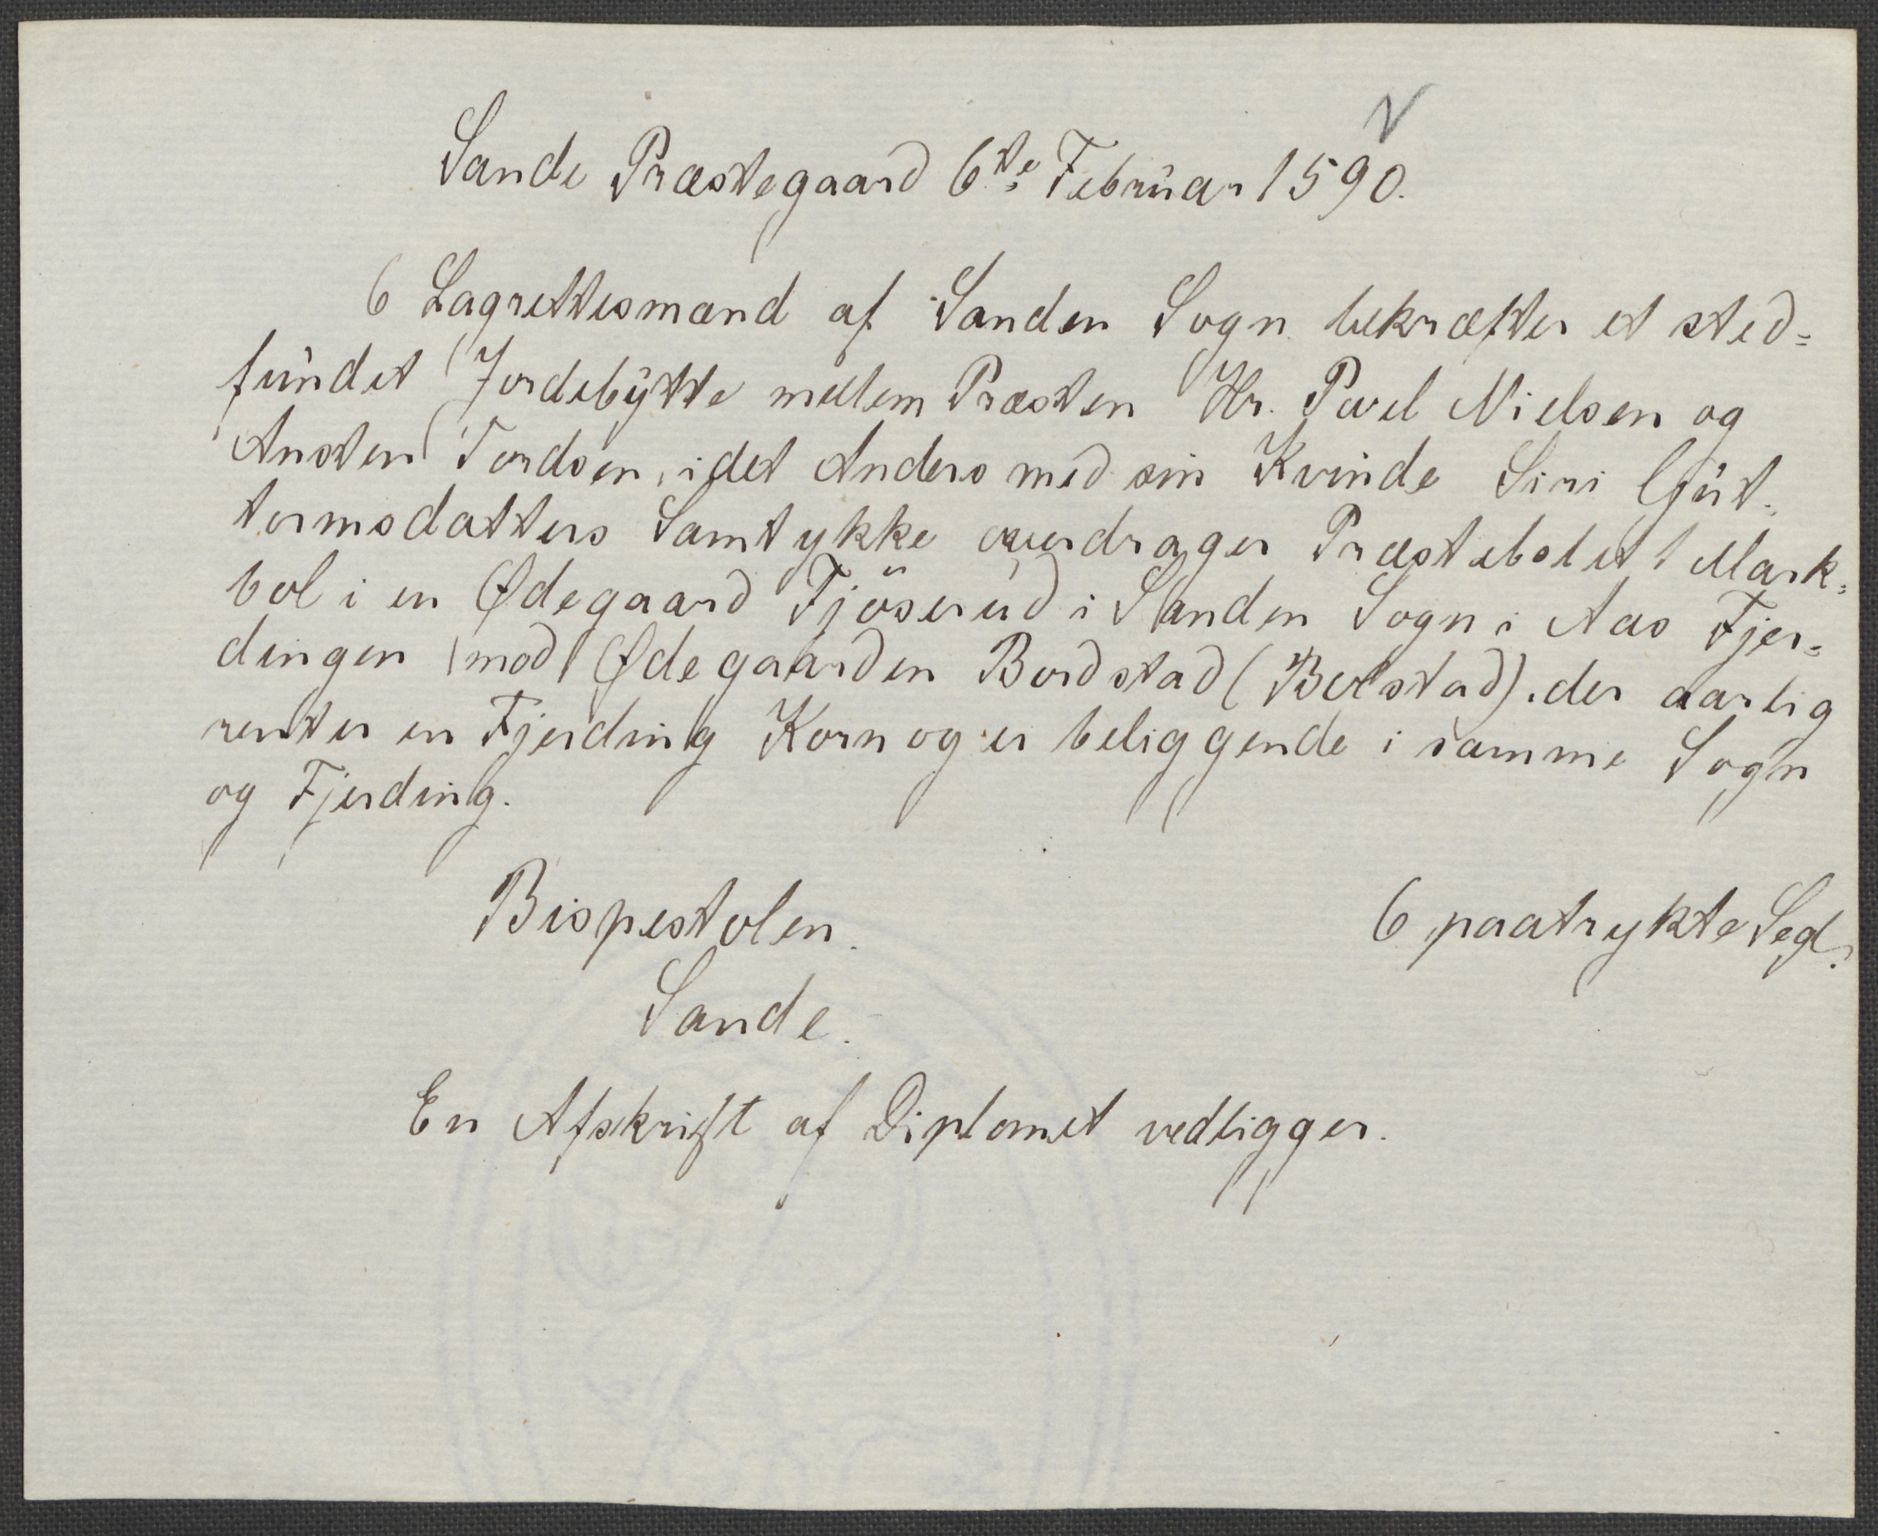 Sande Præstegaard 6te Februar 1590.
6 Lagrettesmænd af Sanden Sogn bekræfter et sted=
fundet Jordebytte mellem Præsten Hr. Povel Nielsen og
Ansten Tordsen, idet Anders med sin Kvinde Siri Gut=
tormsdatters Samtykke overdrager Præstebolet 1 Mark=
bol i en Ødegaard Fjöserud i Sanden Sogn i Aas Fjer=
dingen mod Ødegaarden Bordstad (Bolstad), der aarlig
renter en Fjerding Korn og er beliggende i samme Sogn
og Fjerding.
Bispestolen. 6 paatrykte Segl.
Sande.
En Afskrift af Diplomet vedligger.